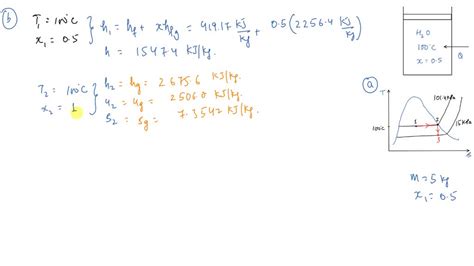 (b) T₁ = 100°C
x₁ = 0.5
h₁ = hf + x hfg = 419.17 kJ/kg + 0.5 (2256.4 kJ/kg)
h = 1547.4 kJ/kg.
T₂ = 100°C
x₂ = 1
h₂ = hg = 2675.6 kJ/kg.
u₂ = ug = 2506.0 kJ/kg.
s₂ = sg = 7.3542 kJ/kg.
H₂O
100°C
x = 0.5
Q
(a)
T
101.4 kPa
15 kPa
100°C
1
2
3
m = 5 kg
x₁ = 0.5